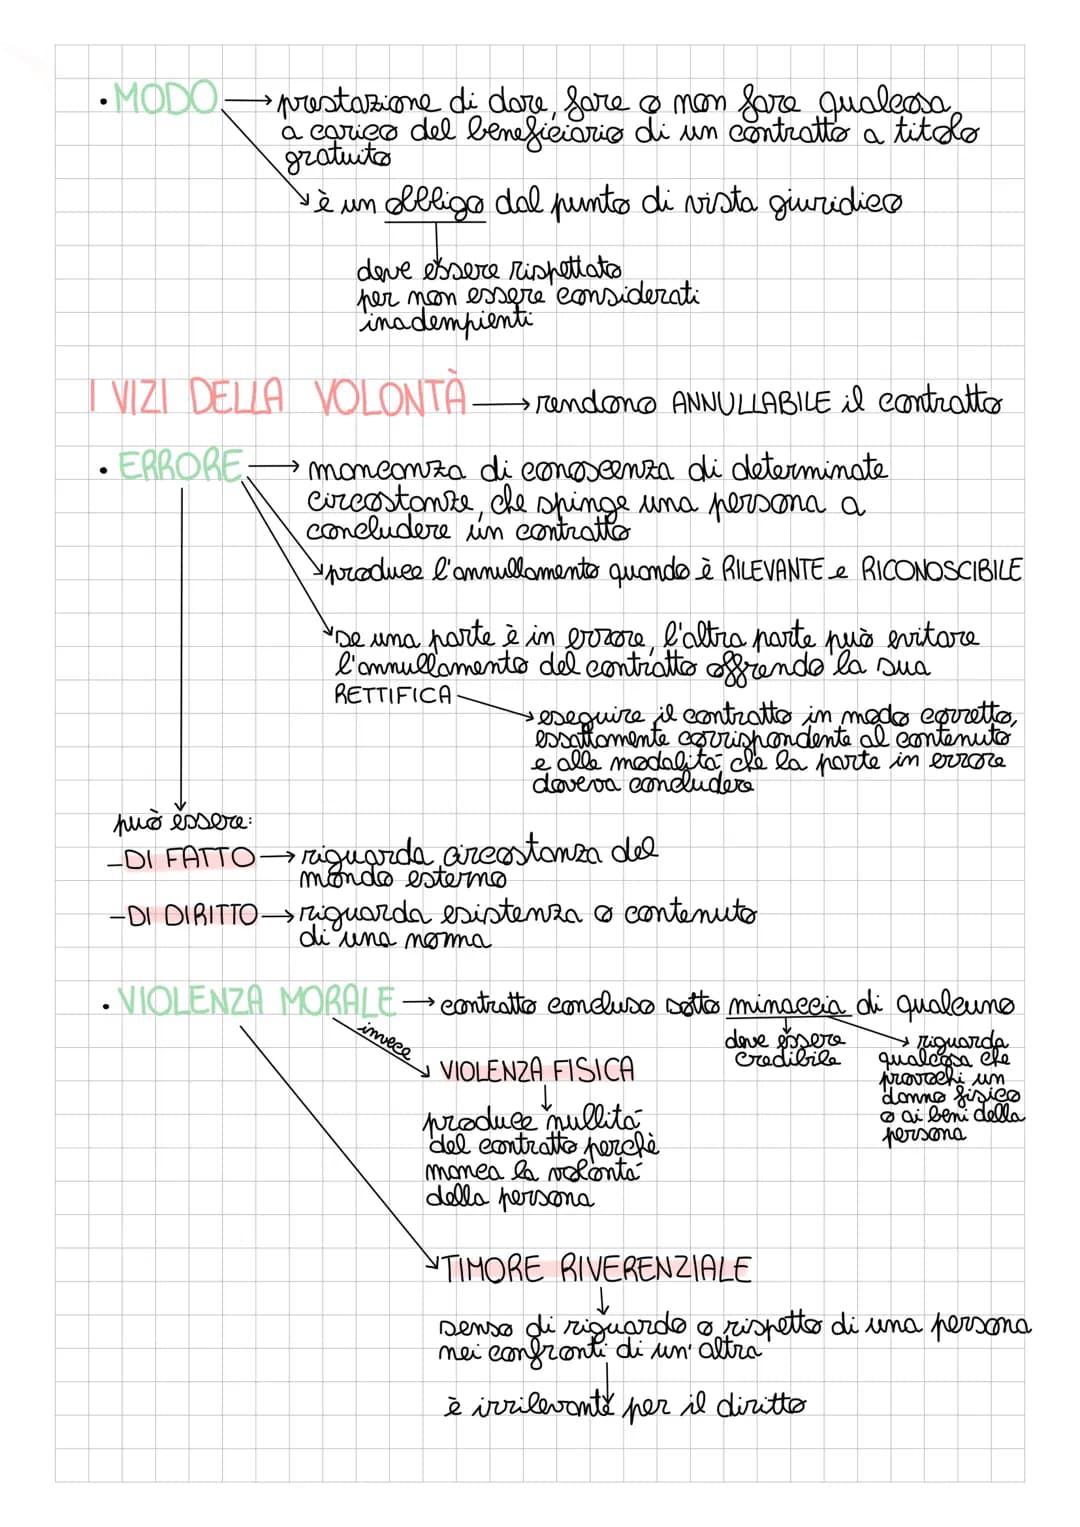 • MODO → prestazione di dare, fare o non fare qualcosa,
a carico del beneficiario di un contratto a titolo
gratuito
è un obbligo dal punto di vista giuridico
deve essere rispettato
per non essere considerati
inadempienti
I VIZI DELLA VOLONTÀ → rendono ANNULLABILE il contratto
• ERRORE → mancanza di conoscenza di determinate
circostanze, che spinge una persona a
concludere un contratto
produce l'annullamento quando è RILEVANTE e RICONOSCIBILE
se una parte è in errore, l'altra parte può evitare
l'annullamento del contratto offrendo la sua
RETTIFICA
eseguire il contratto in modo corretto,
esattamente corrispondente al contenuto
e alle modalità che la parte in errore
doveva concludere
può essere:
-DI FATTO → riguarda circostanza del
mondo esterno
-DI DIRITTO → riguarda esistenza o contenuto
di una norma
• VIOLENZA MORALE → contratto concluso sotto minaccia di qualcuno
invece
deve essere
credibile
riguarda
qualcosa che
provochi un
danno fisico
o ai beni della
persona
VIOLENZA FISICA
produce nullità
del contratto perchè
manca la volontà
della persona
TIMORE RIVERENZIALE
senso di riguardo o rispetto di una persona
nei confronti di un'altra
è irrilevante per il diritto